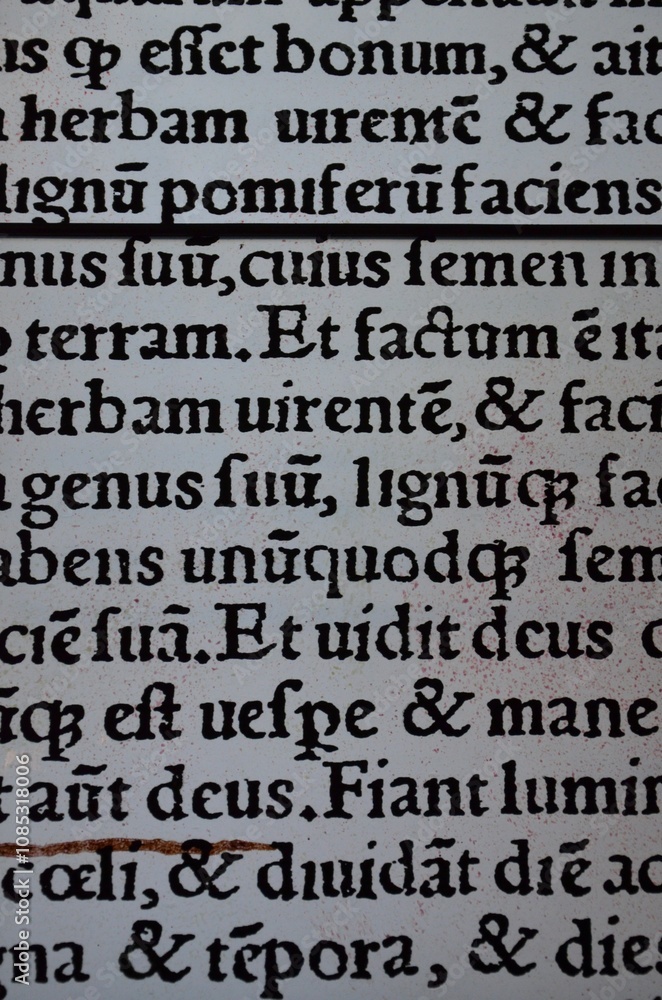 us ꝙ eſſet bonum, & ait
herbam uirentē & fac
lignū pomiferū faciens
nus ſuū, cuius ſemen in
terram. Et factum ē ita
herbam uirentē, & faci
genus ſuū, lignūqꝫ fac
abens unūquodqꝫ ſem
ciē ſuā. Et uidit deus
āqꝫ eſt ueſꝑe & mane
t aūt deus. Fiant lumin
cœli, & diuidāt diē ac
gna & tēpora, & dies
Adobe Stock | #1085318006